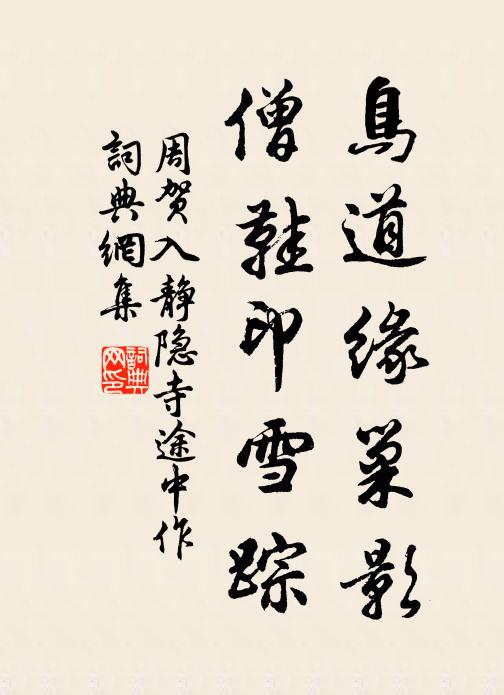 鳥道緣巢影
僧鞋印雪踪
周賀入靜隐寺途中作
詞典網集
詞典网印